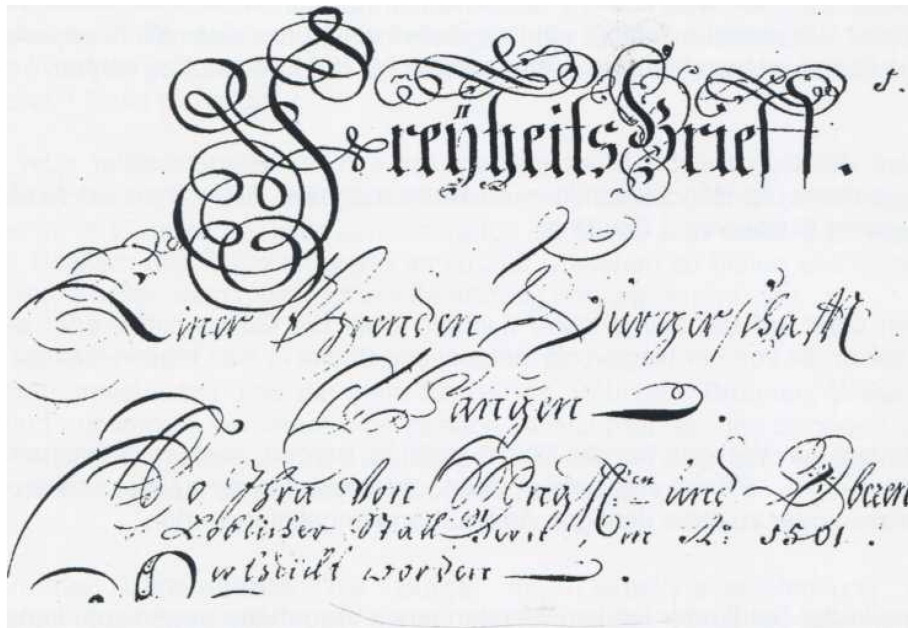 FreÿheitsBrieff.
Einer Ehrenden Burgerschafft
Wangen
So Ihra Von und Oberen
Loblicher Statt Bern, in Aº: 1501.
Ertheilt worden.